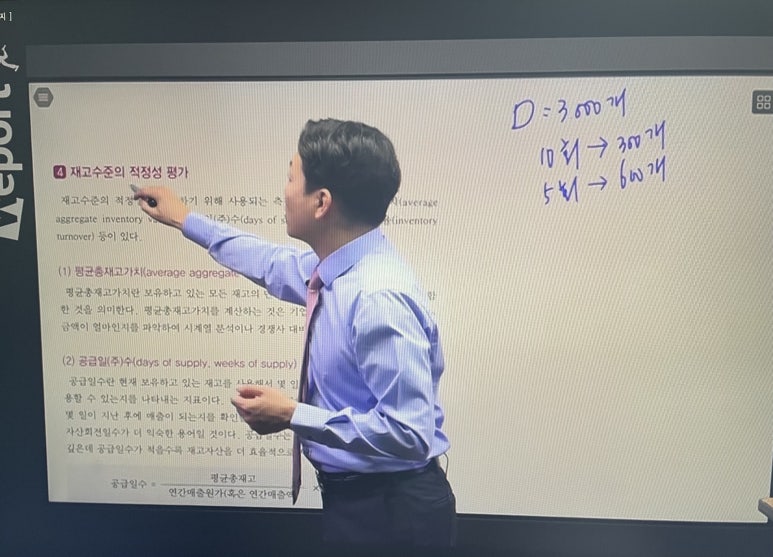 지 ]
eport
D = 3000개
10회 → 300개
5회 → 600개
4 재고수준의 적정성 평가
재고수준의 적정 하기 위해 사용되는 측 (average
aggregate inventory (주)수(days of (inventory
turnover) 등이 있다.
(1) 평균총재고가치(average aggregate
평균총재고가치란 보유하고 있는 모든 재고의 합
한 것을 의미한다. 평균총재고가치를 계산하는 것은 기업
금액이 얼마인지를 파악하여 시계열 분석이나 경쟁사 대비
(2) 공급일(주)수(days of supply, weeks of supply)
공급일수란 현재 보유하고 있는 재고를 사용해서 몇 일
용할 수 있는지를 나타내는 지표이다.
몇 일이 지난 후에 매출이 되는지를 확인
자산회전일수가 더 익숙한 용어일 것이다. 공급일수는
깊은데 공급일수가 적을수록 재고자산을 더 효율적으로
공급일수 = 평균총재고
연간매출원가(혹은 연간매출액 ×